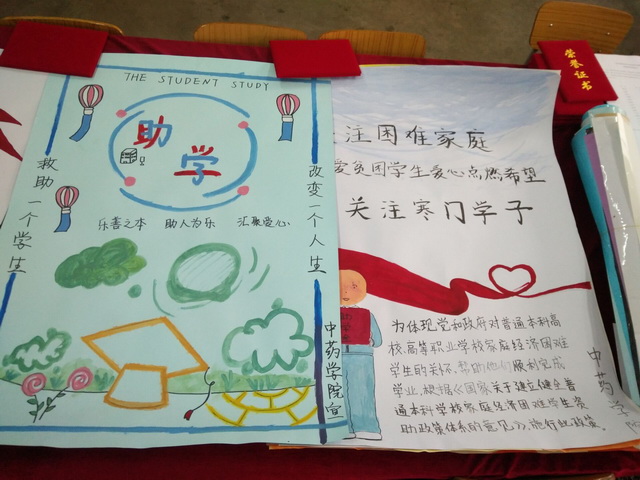 THE STUDENT STUDY
助
学
救助一个学生
改变一个人生
乐善之本 助人为乐 汇聚爱心
中药学院宣
注困难家庭
爱贫困学生爱心点燃希望
关注寒门学子
为体现党和政府对普通本科高
校、高等职业学校家庭经济困难
学生的关怀,帮助他们顺利完成
学业,根据《国家关于建立健全普
通本科学校家庭经济困难学生资
助政策体系的意见》,施行此政策。
中药学院
荣誉证书